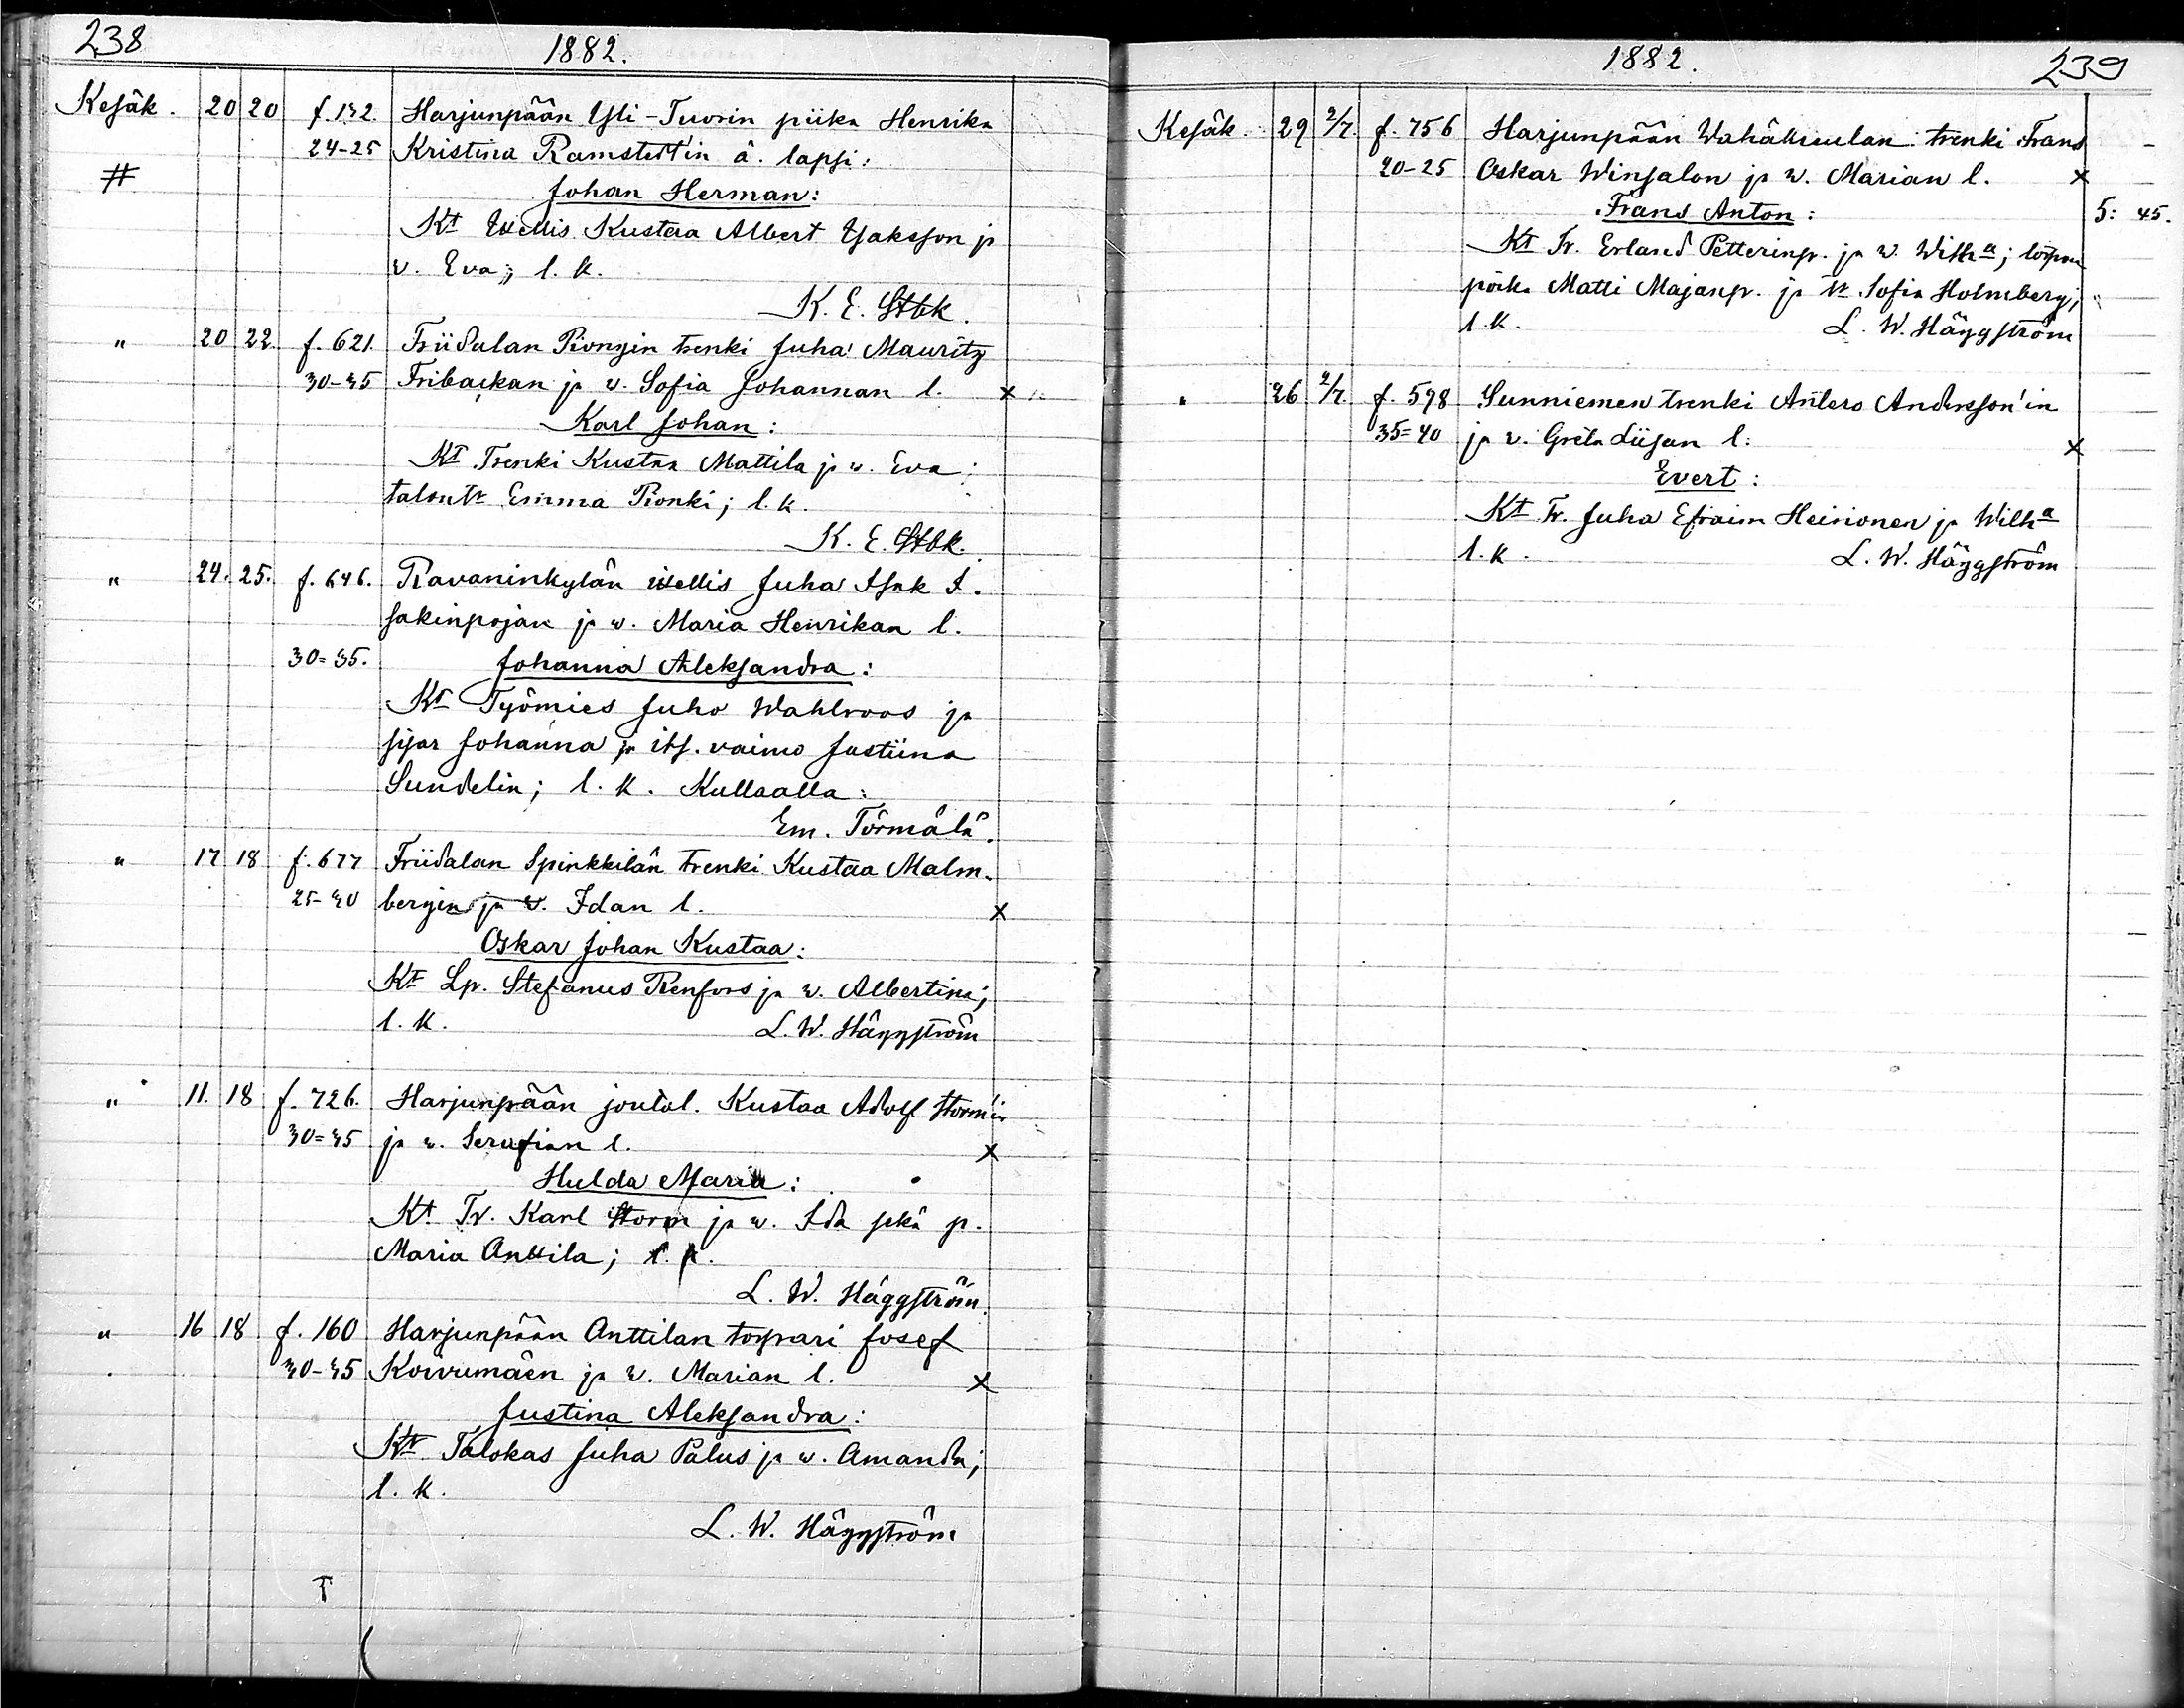 238
1882.
Kesäk. 20 20 f. 132. Harjunpään Yli-Tuorin piika Henrika
24-25 Kristina Ramstedt'in ä. lapsi:
# Johan Herman:
Kt Itsellis Kustaa Albert Isaksson ja
v. Eva; l. k.
K. E. Stbk.
" 20 22. f. 621. Friidalan Rongin trenki Juha Mauritz
30-35 Fribackan ja v. Sofia Johannan l. x
Karl Johan:
Kt Trenki Kustaa Mattila ja v. Eva;
talontr Emma Ronki; l. k.
K. E. Stbk.
" 24. 25. f. 646. Ravaninkylän itsellis Juha Isak I-
sakinpojan ja v. Maria Henrikan l.
30=35. Johanna Aleksandra:
Kt Työmies Juho Wahlroos ja
sisar Johanna ja its. vaimo Justiina
Sundelin; l. k. Kullaalla:
Em. Törmälä.
" 17 18 f. 677 Friidalan Spinkkilän trenki Kustaa Malm-
25-30 bergin ja v. Idan l. x
Oskar Johan Kustaa:
Kt Lp. Stefanus Renfors ja v. Albertina;
l. k. L. W. Häggström
" 11. 18 f. 726. Harjunpään joutol. Kustaa Adolf Storm'in
30=35 ja v. Serafian l. x
Hulda Maria:
Kt Tr. Karl Storm ja v. Ida sekä p.
Maria Anttila; l. k.
L. W. Häggström.
" 16 18 f. 160 Harjunpään Anttilan torpari Josef
30-35 Koivumäen ja v. Marian l. x
Justina Aleksandra:
Kt Talokas Juha Palus ja v. Amanda;
l. k.
L. W. Häggström
1882.
239
Kesäk. 29 2/7. f. 756 Harjunpään Wähäkuulan trenki Frans
20-25 Oskar Winsalon ja v. Marian l. x
Frans Anton: 5: 45.
Kt Tr. Erland Petterinp. ja v. Wilha; torpan
poika Matti Majanp. ja tr Sofia Holmberg;
l. k. L. W. Häggström
" 26 2/7. f. 598 Sunniemen trenki Antero Andersson'in
35=40 ja v. Greta Liisan l: x
Evert:
Kt Tr. Juha Efraim Heinonen ja Wilha
l. k. L. W. Häggström